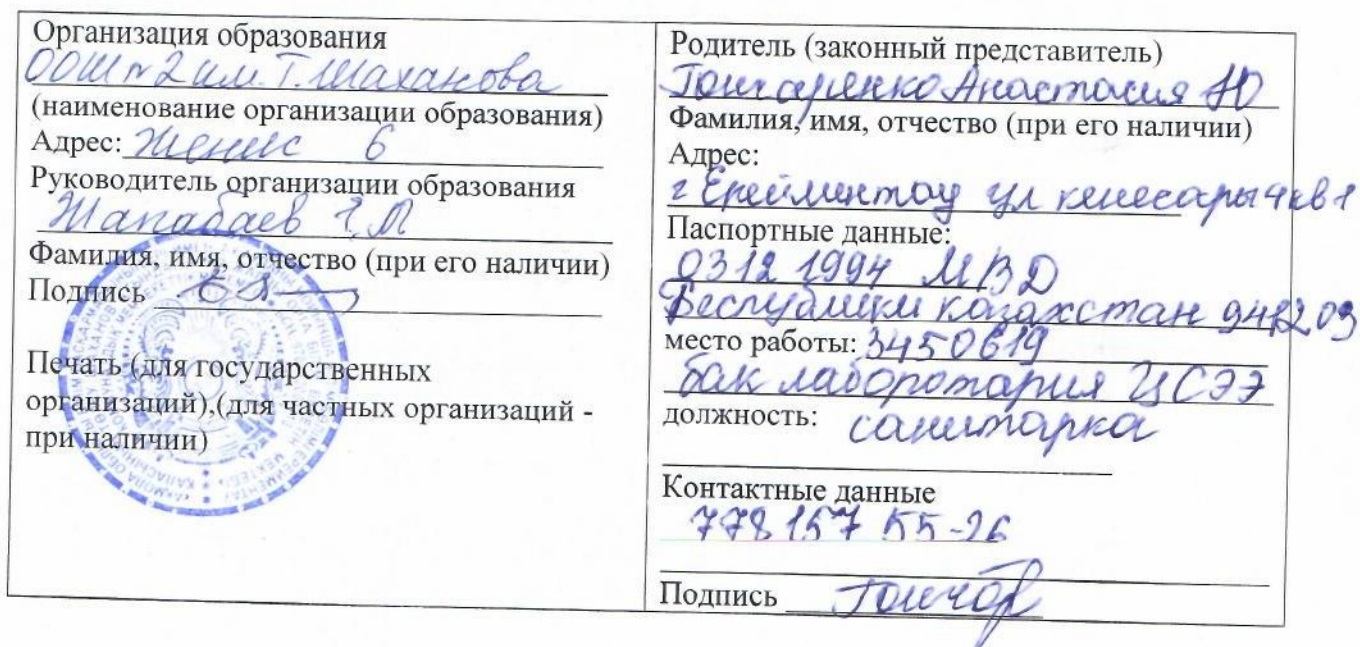 Организация образования
ООШ №2 им. Т. Шаханова
(наименование организации образования)
Адрес: Женис 6
Руководитель организации образования
Жапабаев Г.М
Фамилия, имя, отчество (при его наличии)
Подпись
Печать (для государственных
организаций),(для частных организаций -
при наличии)
Родитель (законный представитель)
Гончаренко Анастасия Ю
Фамилия, имя, отчество (при его наличии)
Адрес:
г Ерейментау ул кенесары 4 кв 1
Паспортные данные:
03 12 1994 МВД
Республики казахстан 941203
место работы: 3450619
бак лаборотария ЦСЭЭ
должность: санитарка
Контактные данные
778 157 55-26
Подпись Гончар